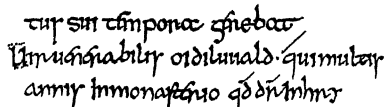 tus sui tempora gerebat
Uir uenerabilis oidiluuald · qui multis
annis In monasterio qđ dr̄ Inhry